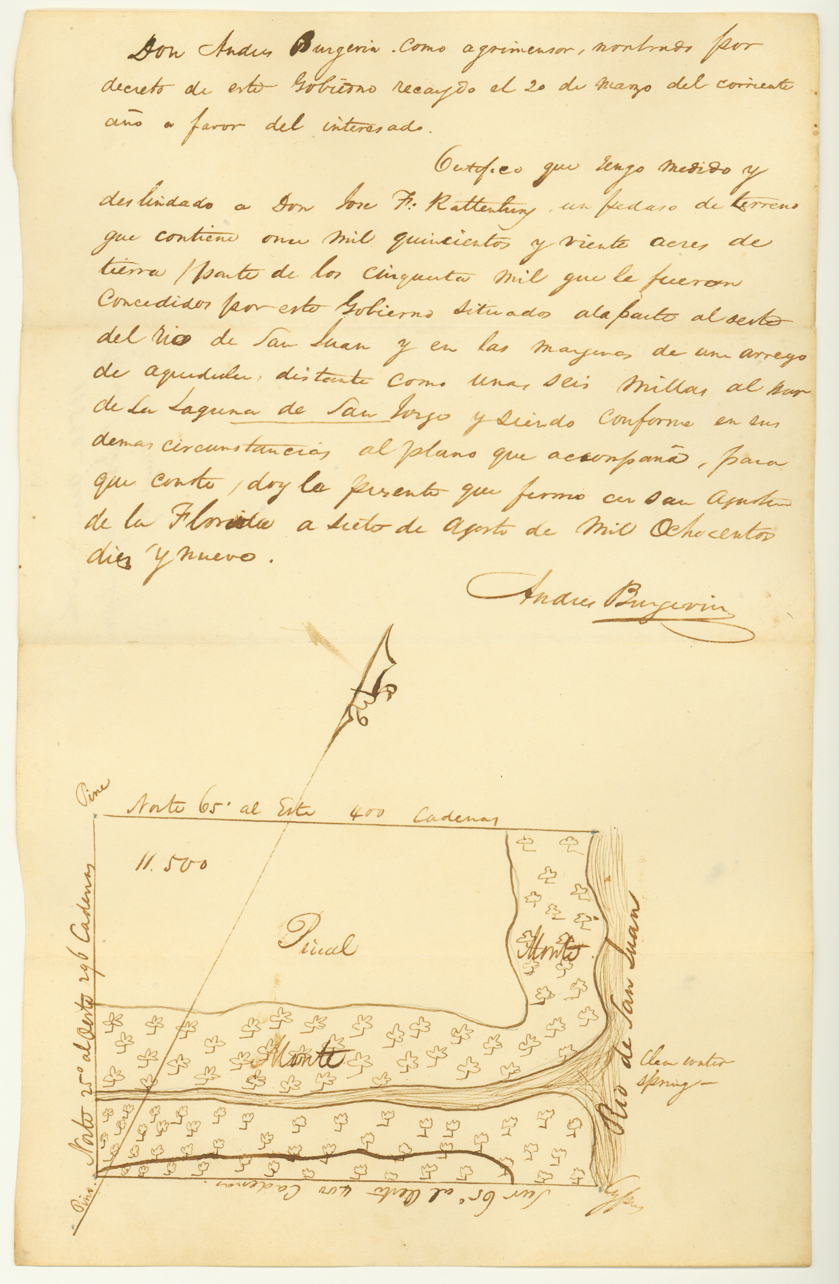 Don Andres Burgevin. Como agrimensor, nonbrado por
decreto de este Gobierno recaydo el 20 de Marzo del corriente
año a favor del interesado.
Certifico que tengo medido y
deslindado a Don Jose F: Rattenbury un pedaso de terreno
que contiene once Mil quinientos y viente acres de
tierra / parte de los cinquenta Mil que le fueron
Concedidos por este Gobierno situados ala parte al oesto
del rio de San Juan y en las margenes de un arroyo
de aguadulce, distante como unas seis Millas al Sur
de La Laguna de San Jorge y siendo Conforme en sus
demas circunstancias al plano que acompaña, para
que conste, doy la presente que firmo en San Agustin
de la Florida a Siete de Agosto de Mil Ochocentos
diez y nuevo.
Andres Burgevin
Pine
Norte 65° al Este 400 Cadenas
11.500
Pinal
Monte
Norte 25° al Oesto 296 Cadenas
Rio de San Juan
Monte
Clear water
spring
Pine
Sur 65° al Oesto 400 Cadenas.